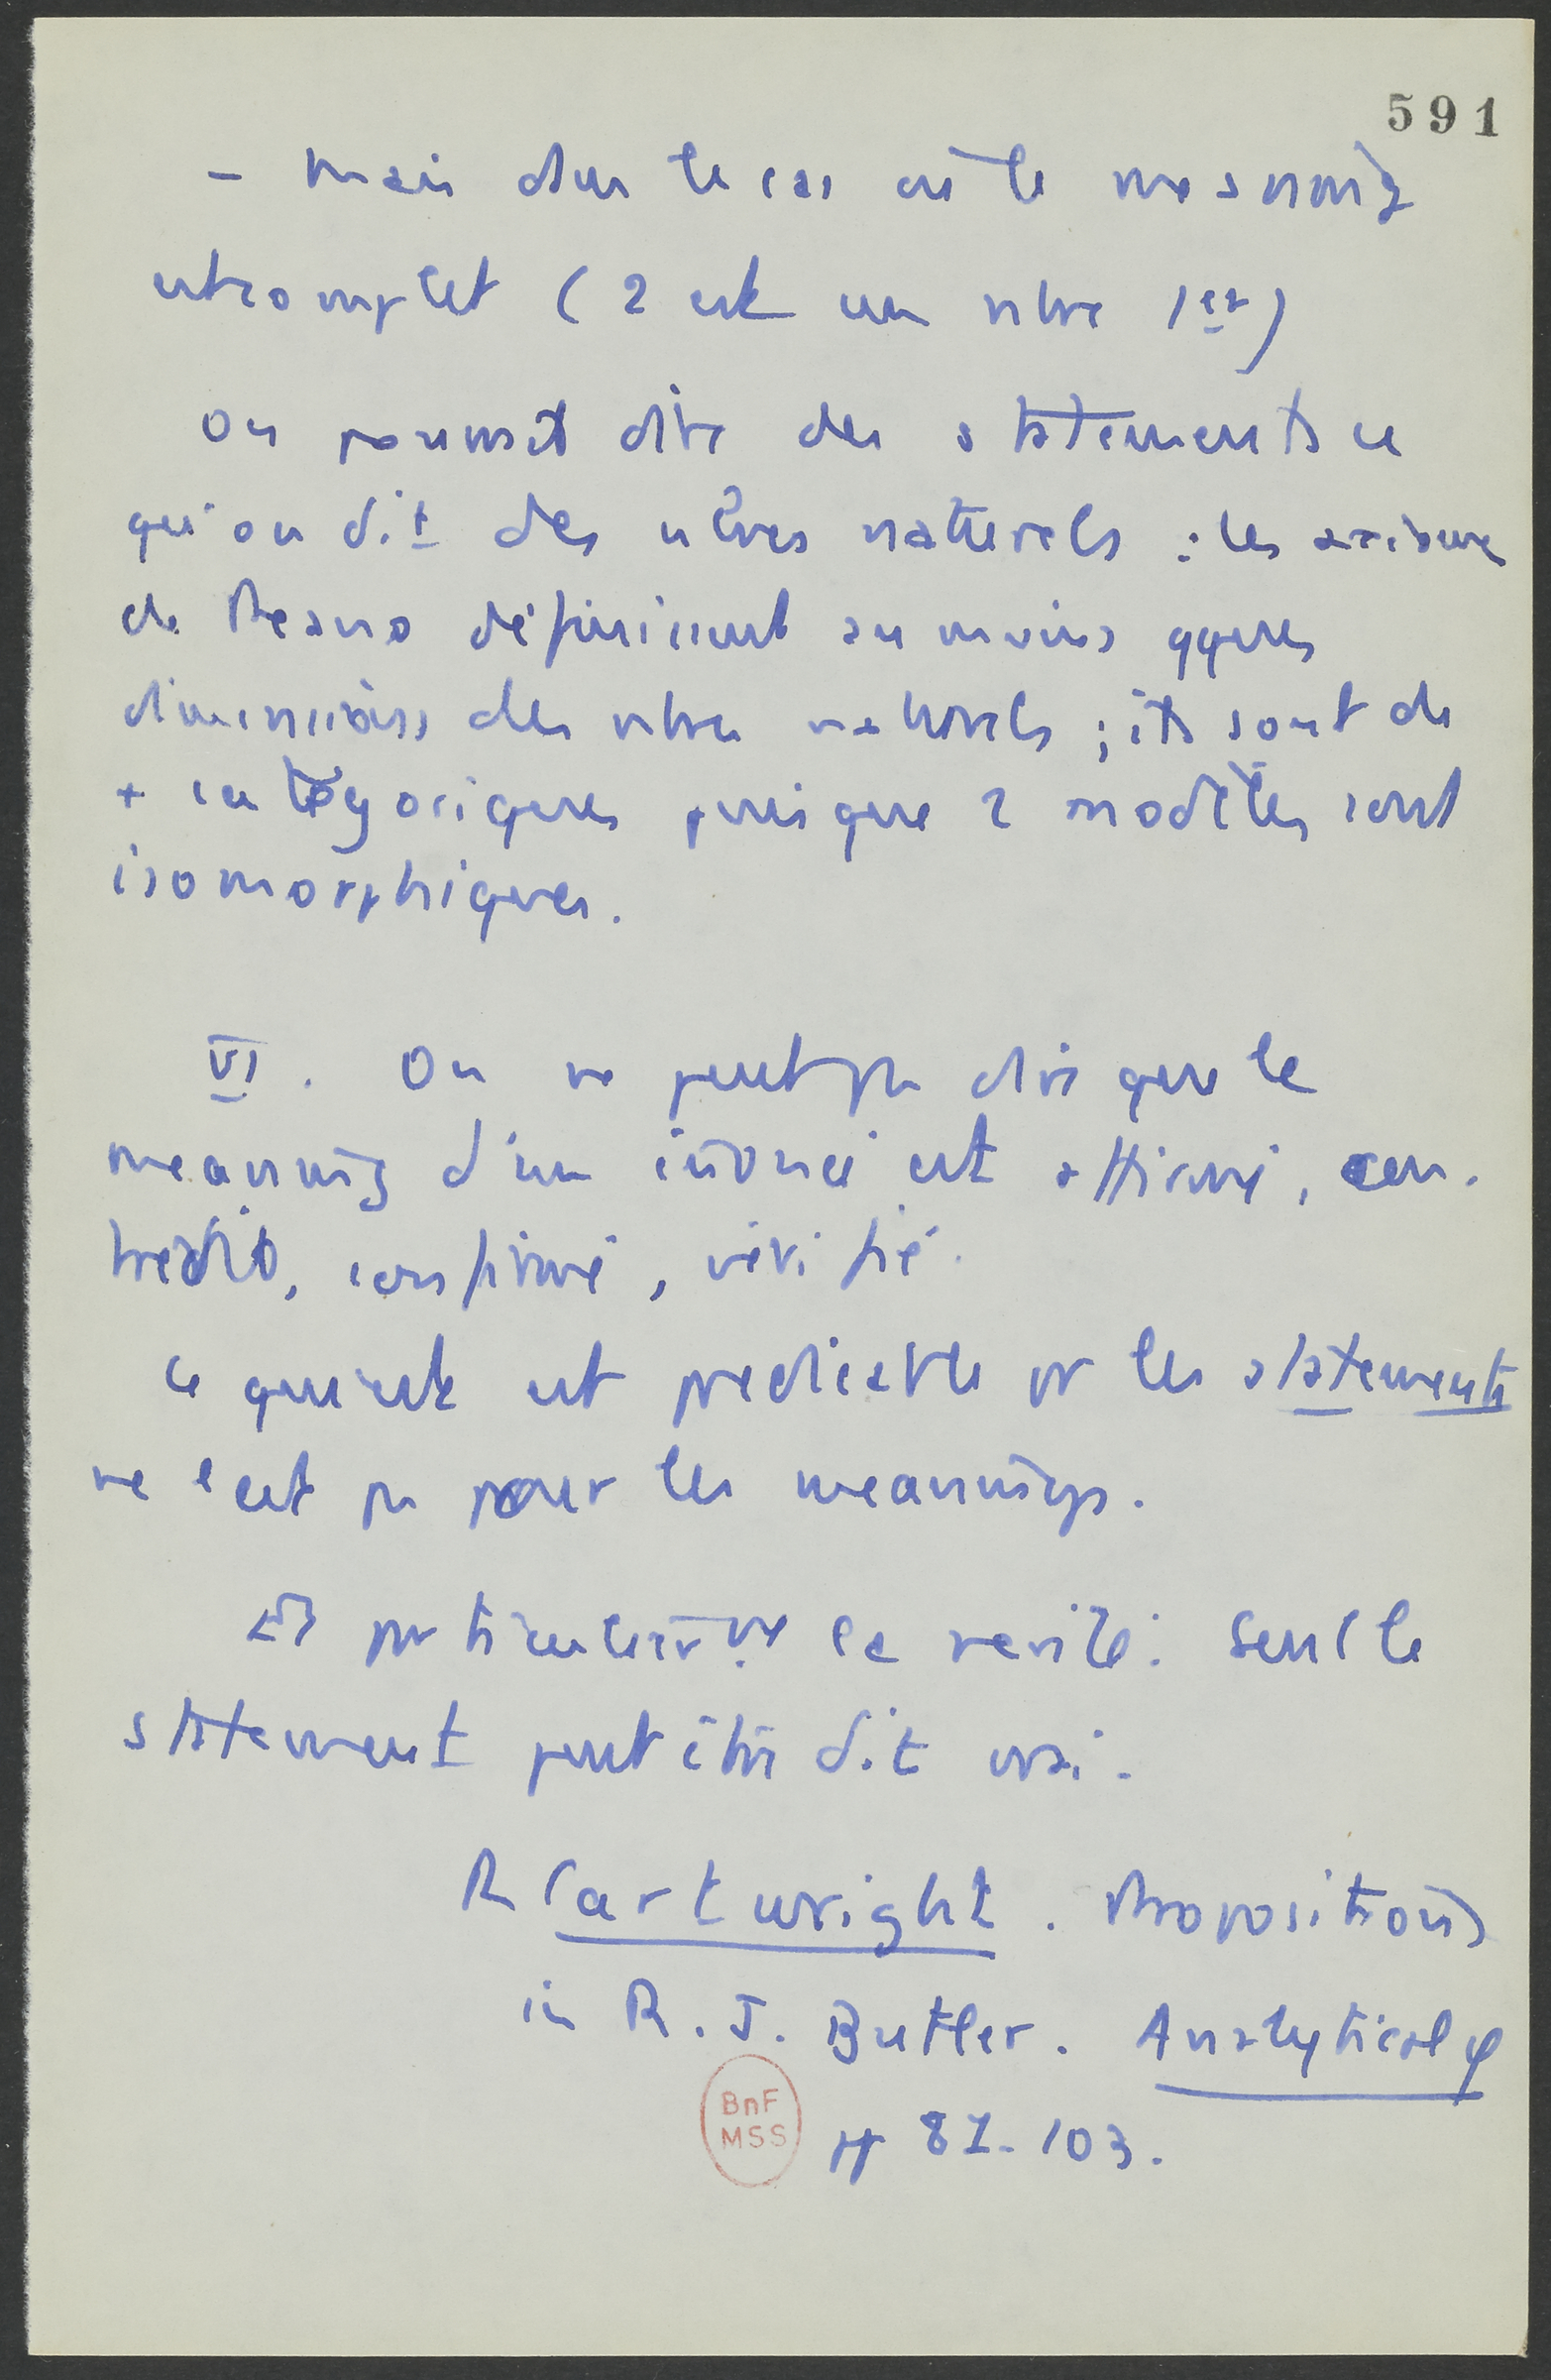 591
- Mais dans le cas où le meanning
est complet (2 est un nbre 1er)
On pourrait dire des statements ce
qu'on dit des nbres naturels : les axiomes
de Peano définissent au moins qques
dimensions des nbres naturels ; ils sont de
+ catégoriques puisque 2 modèles sont
isomorphiques.
VI. On ne peut pas dire que le
meanning d'un énoncé est affirmé, con-
tredit, confirmé, vérifié.
Ce qui est est predicable pr les statements
ne l'est pas pour les meannings.
Et particulièrmt la vérité : Seul le
statement peut être dit vrai.
R Cartwright. Propositions
in R. J. Butler. Analytical φ
pp 81-103.
BnF
MSS